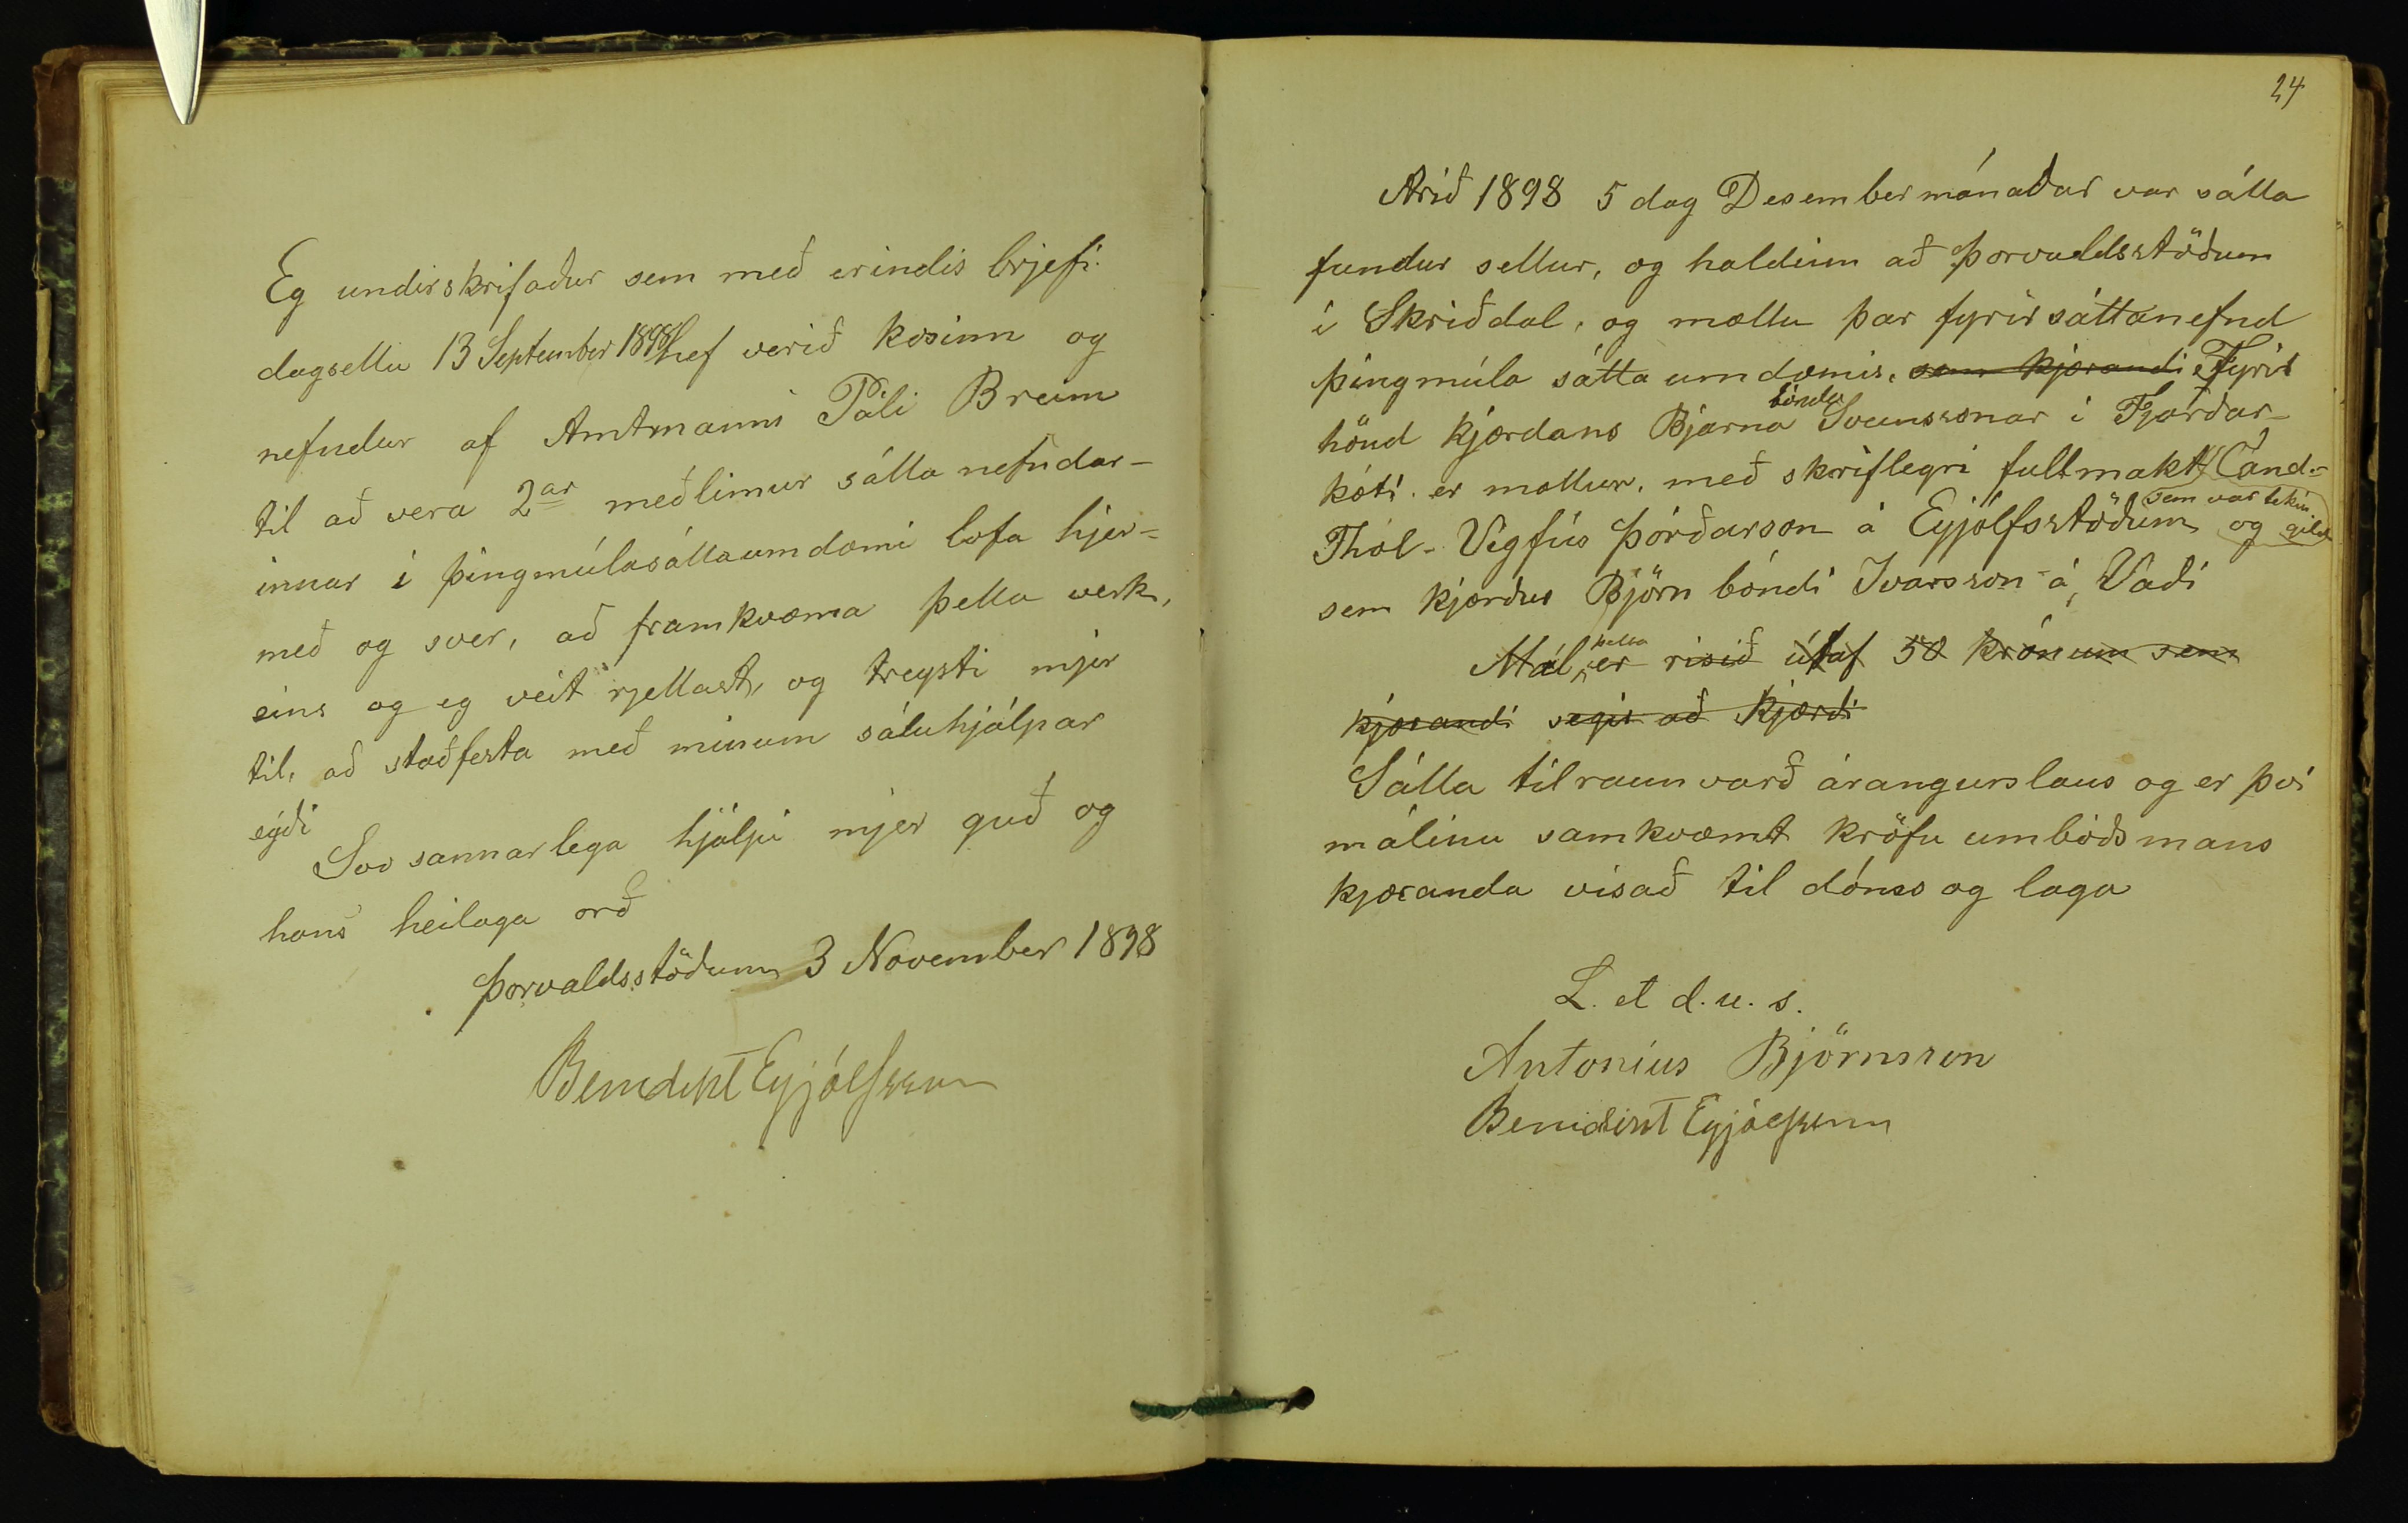 Eg undirskrifaður sem með erindis brjefi
dagsettu 13 September 1898 hef verið kosinn og
nefndur af Amtmanni Páli Breim
til að vera 2ar meðlimur sátta nefndar-
innar í þingmúlasáttaumdæmi lofa hjer-
með og sver, að framkvæma þetta verk,
eins og eg veit rjettast, og treysti mjer
til, að staðfesta með mínum sáluhjálpar
eyði
Svo sannarlega hjálpi mjer guð og
hans heilaga orð
Þorvaldsstöðum 3 November 1898
Benedikt Eyjólfsson
24
Arið 1898 5 dag Desembermánaðar var sátta
fundur settur, og haldinn að Þorvaldsstöðum
í Skriðdal, og mættu þar fyrir sáttanefnd
þingmúla sátta umdæmis, sem kjærandi Fyrir
hönd kjærdans Bjarna bónda Sveinssonar í Fjarðar-
koti er mættur, með skriflegri fullmakt, Cand.-
sem var tekin
Thol- Vigfús Þórðarson á Eyjólfsstöðum og gild
sem kjærður Björn bóndi Ivarsson á Vaði
Mál þetta er risið útaf 50 krónum sem
kjærandi segir að kjærði
Sátta tilraun varð árangurslaus og er því
málinu samkvæmt kröfu umboðsmans
kjæranda vísað til dóms og laga
L. et d. u. s.
Antoníus Björnsson
Benidikt Eyjólfsson